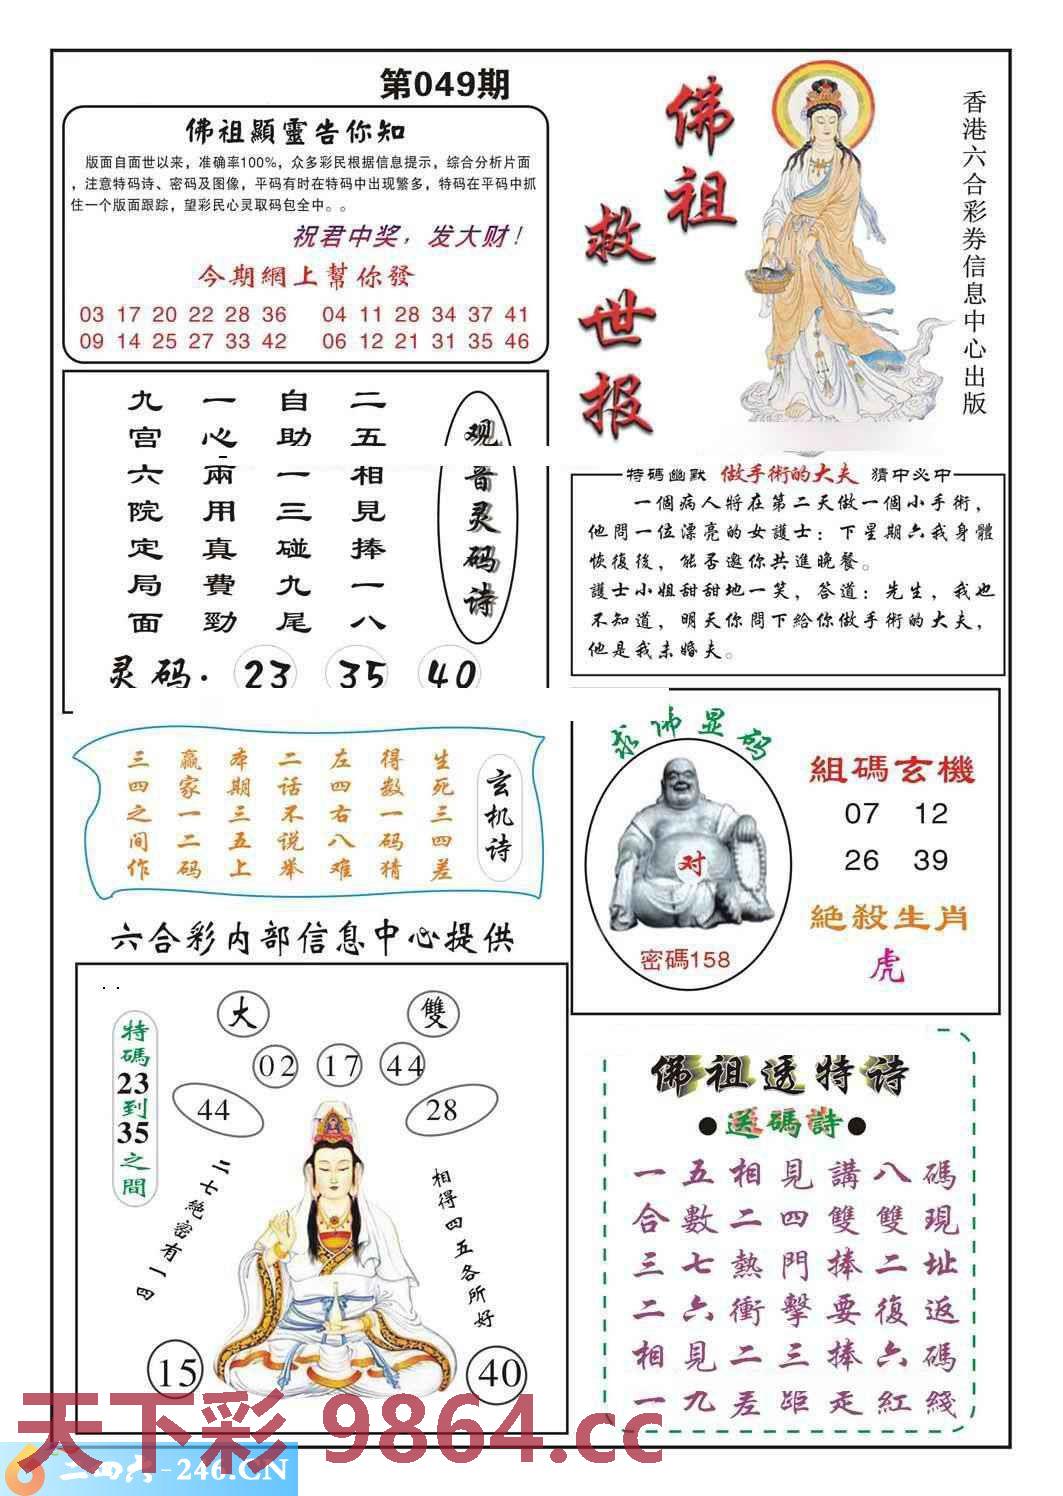 第049期
佛祖顯靈告你知
版面自面世以来，准确率100%，众多彩民根据信息提示，综合分析片面
，注意特码诗、密码及图像，平码有时在特码中出现繁多，特码在平码中抓
住一个版面跟踪，望彩民心灵取码包全中。。
祝君中奖，发大财！
今期網上幫你發
03 17 20 22 28 36 04 11 28 34 37 41
09 14 25 27 33 42 06 12 21 31 35 46
佛祖
救世报
香港六合彩券信息中心出版
观音灵码诗
二五相見捧一八
自助一三碰九尾
一心兩用真費勁
九宫六院定局面
灵码. 23 35 40
特碼幽默 做手術的大夫 猜中必中
一個病人將在第二天做一個小手術，
他問一位漂亮的女護士：下星期六我身體
恢復後，能否邀你共進晚餐。
護士小姐甜甜地一笑，答道：先生，我也
不知道，明天你問下給你做手術的大夫，
他是我未婚夫。
玄机诗
生死三四差
得数一码猜
左四右八难
二话不说举
本期三五上
赢家一二码
三四之间作
求佛显码
对
密碼158
組碼玄機
07 12
26 39
絕殺生肖
虎
六合彩内部信息中心提供
特碼23到35之間
大 雙
02 17 44
44 28
二七絕密有一四
相得四五各所好
15 40
佛祖透特诗
●送碼詩●
一五相見講八碼
合數二四雙雙現
三七熱門捧二址
二六衝擊要復返
相見二三捧六碼
一九差距走紅綫
天下彩 9864.cc
二四六-246.CN